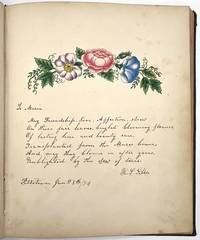 To Miera
May Friendship, love, Affection, show
On these fair leaves, bright blooming flowers
Of lasting hue and beauty rare
Transplanted from the Muses bowers
And may they bloom in after years
Unblighted by the dew of tears.
Pottstown, June